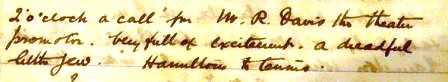 2 o'clock a call from Mr. R. Davis the theater
promotor. Very full of excitement. a dreadful
little Jew. Hamiltons to tennis.